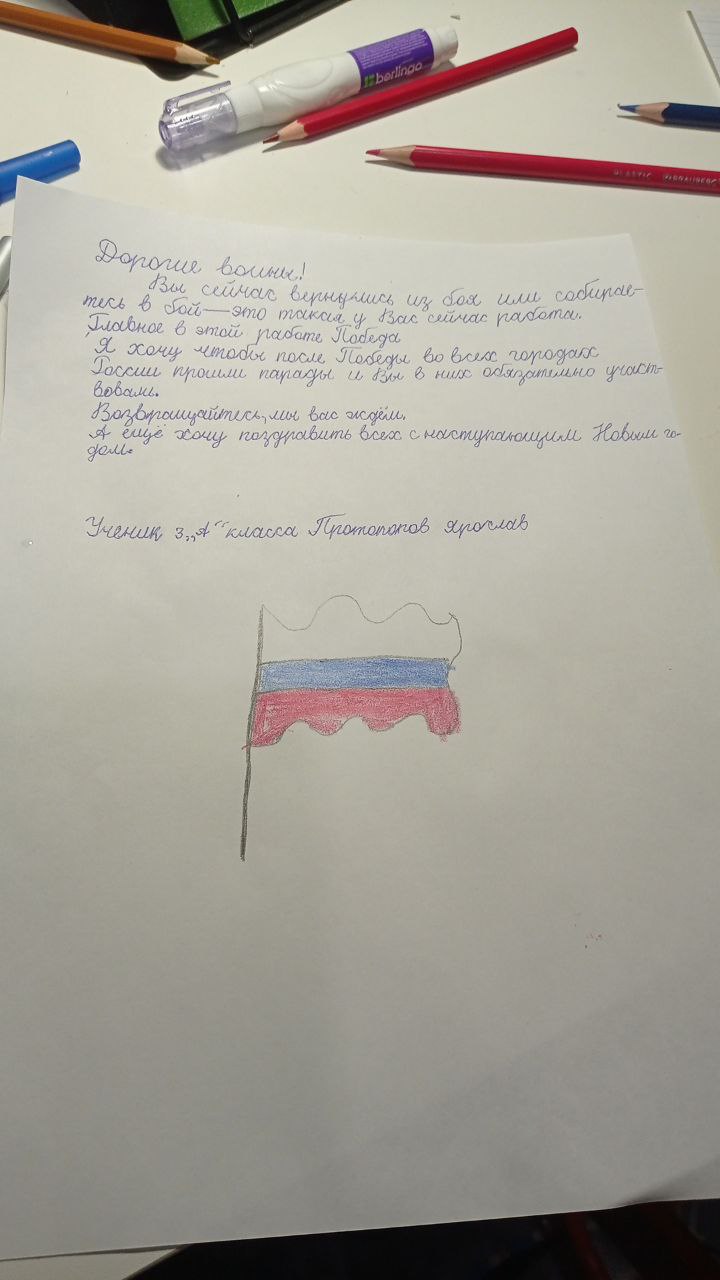 berlingo
PLASTIC BRAUBERG
Дорогие воины!
Вы сейчас вернулись из боя или собирае-
тесь в бой — это такая у Вас сейчас работа.
Главное в этой работе Победа
Я хочу чтобы после Победы во всех городах
России прошли парады и Вы в них обязательно участ-
вовали.
Возвращайтесь, мы вас ждём.
А ещё хочу поздравить всех с наступающим Новым го-
дом.
Ученик 3 „А“ класса Протопопов Ярослав